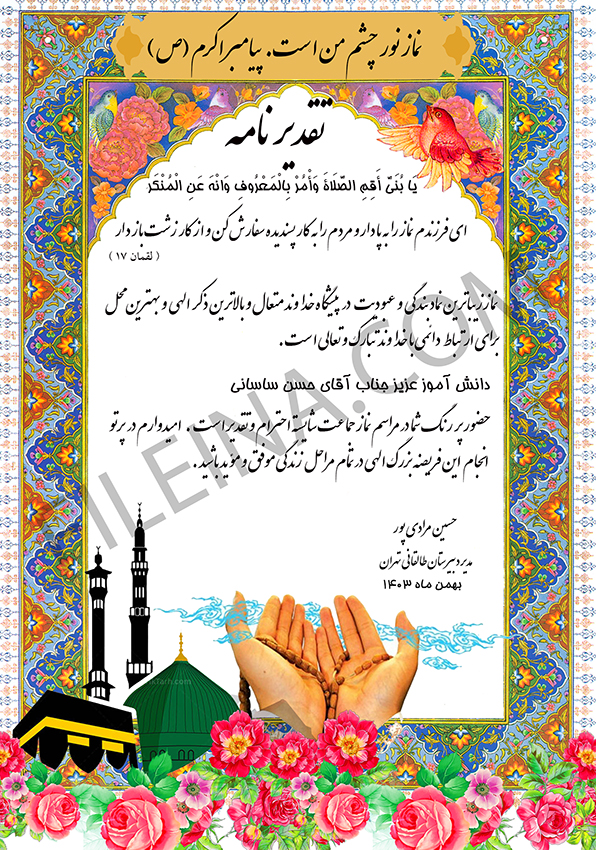 نماز نور چشم من است. پیامبر اکرم (ص)
تقدیر نامه
یَا بُنَیَّ أَقِمِ الصَّلَاةَ وَأْمُرْ بِالْمَعْرُوفِ وَانْهَ عَنِ الْمُنْکَرِ
ای فرزندم نماز را به پا دار و مردم را به کار پسندیده سفارش کن و از کار زشت باز دار
( لقمان ۱۷ )
نماز زیباترین نماد بندگی و عبودیت در پیشگاه خداوند متعال و بالاترین ذکر الهی و بهترین محل
برای ارتباط دائمی با خداوند تبارک و تعالی است.
دانش آموز عزیز جناب آقای حسن ساسانی
حضور پر رنگ شما در مراسم نماز جماعت شایسته احترام و تقدیر است . امیدوارم در پرتو
انجام این فریضه بزرگ الهی در تمام مراحل زندگی موفق و مؤید باشید .
حسین مرادی پور
مدیر دبیرستان طالقانی تهران
بهمن ماه ۱۴۰۳
ILEINA.COM